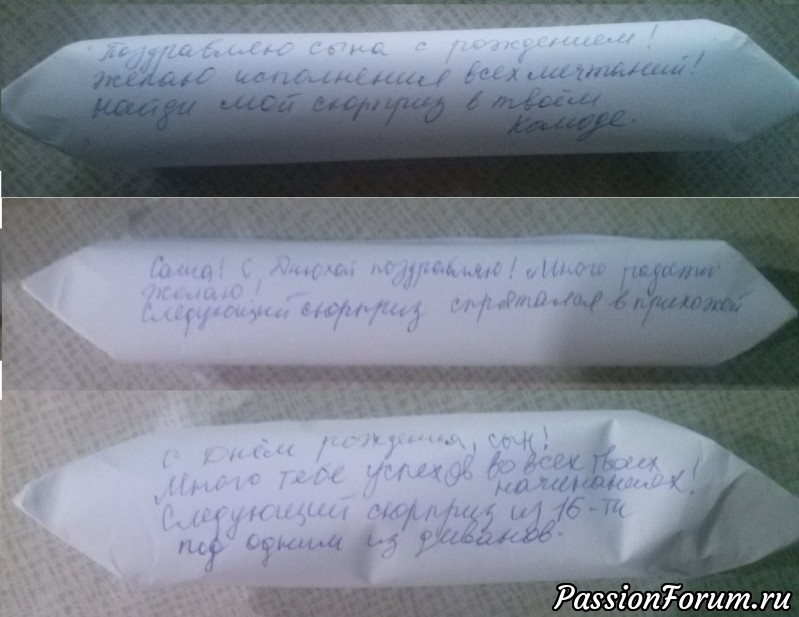 Поздравляю сына с рождением!
Желаю исполнения всех мечтаний!
Найди мой сюрприз в твоём
комоде.
Саша! С Днюхой поздравляю! Много радости
желаю!
Следующий сюрприз спрятался в прихожей
С Днём рождения, сын!
Много тебе успехов во всех твоих
начинаниях!
Следующий сюрприз из 16-ти
под одним из диванов.
PassionForum.ru